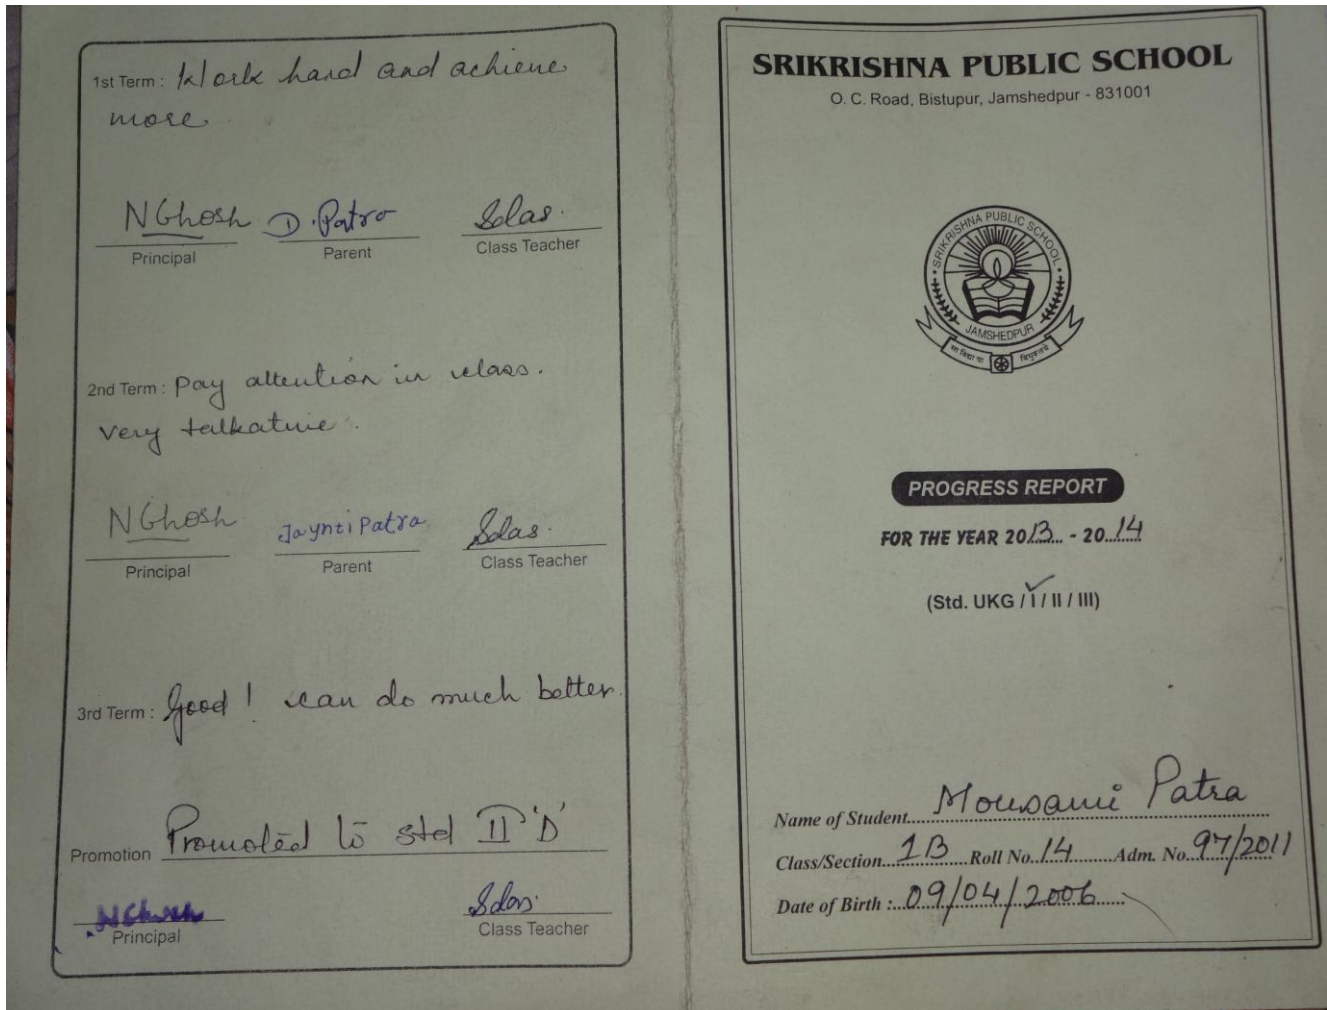 1st Term : Work hard and achieve
more
N Ghosh D. Patra Sdas.
Principal Parent Class Teacher
2nd Term : Pay attention in class.
very talkative.
N Ghosh Jaynti Patra Sdas.
Principal Parent Class Teacher
3rd Term : Good ! can do much better.
Promotion Promoted to std II 'D'
N Ghosh Sdas.
Principal Class Teacher
SRIKRISHNA PUBLIC SCHOOL
O. C. Road, Bistupur, Jamshedpur - 831001
SRIKRISHNA PUBLIC SCHOOL
JAMSHEDPUR
सा विद्या या विमुक्तये
PROGRESS REPORT
FOR THE YEAR 2013 - 2014
(Std. UKG / I / II / III)
Name of Student Mousami Patra
Class/Section 1B Roll No. 14 Adm. No. 97/2011
Date of Birth : 09/04/2006